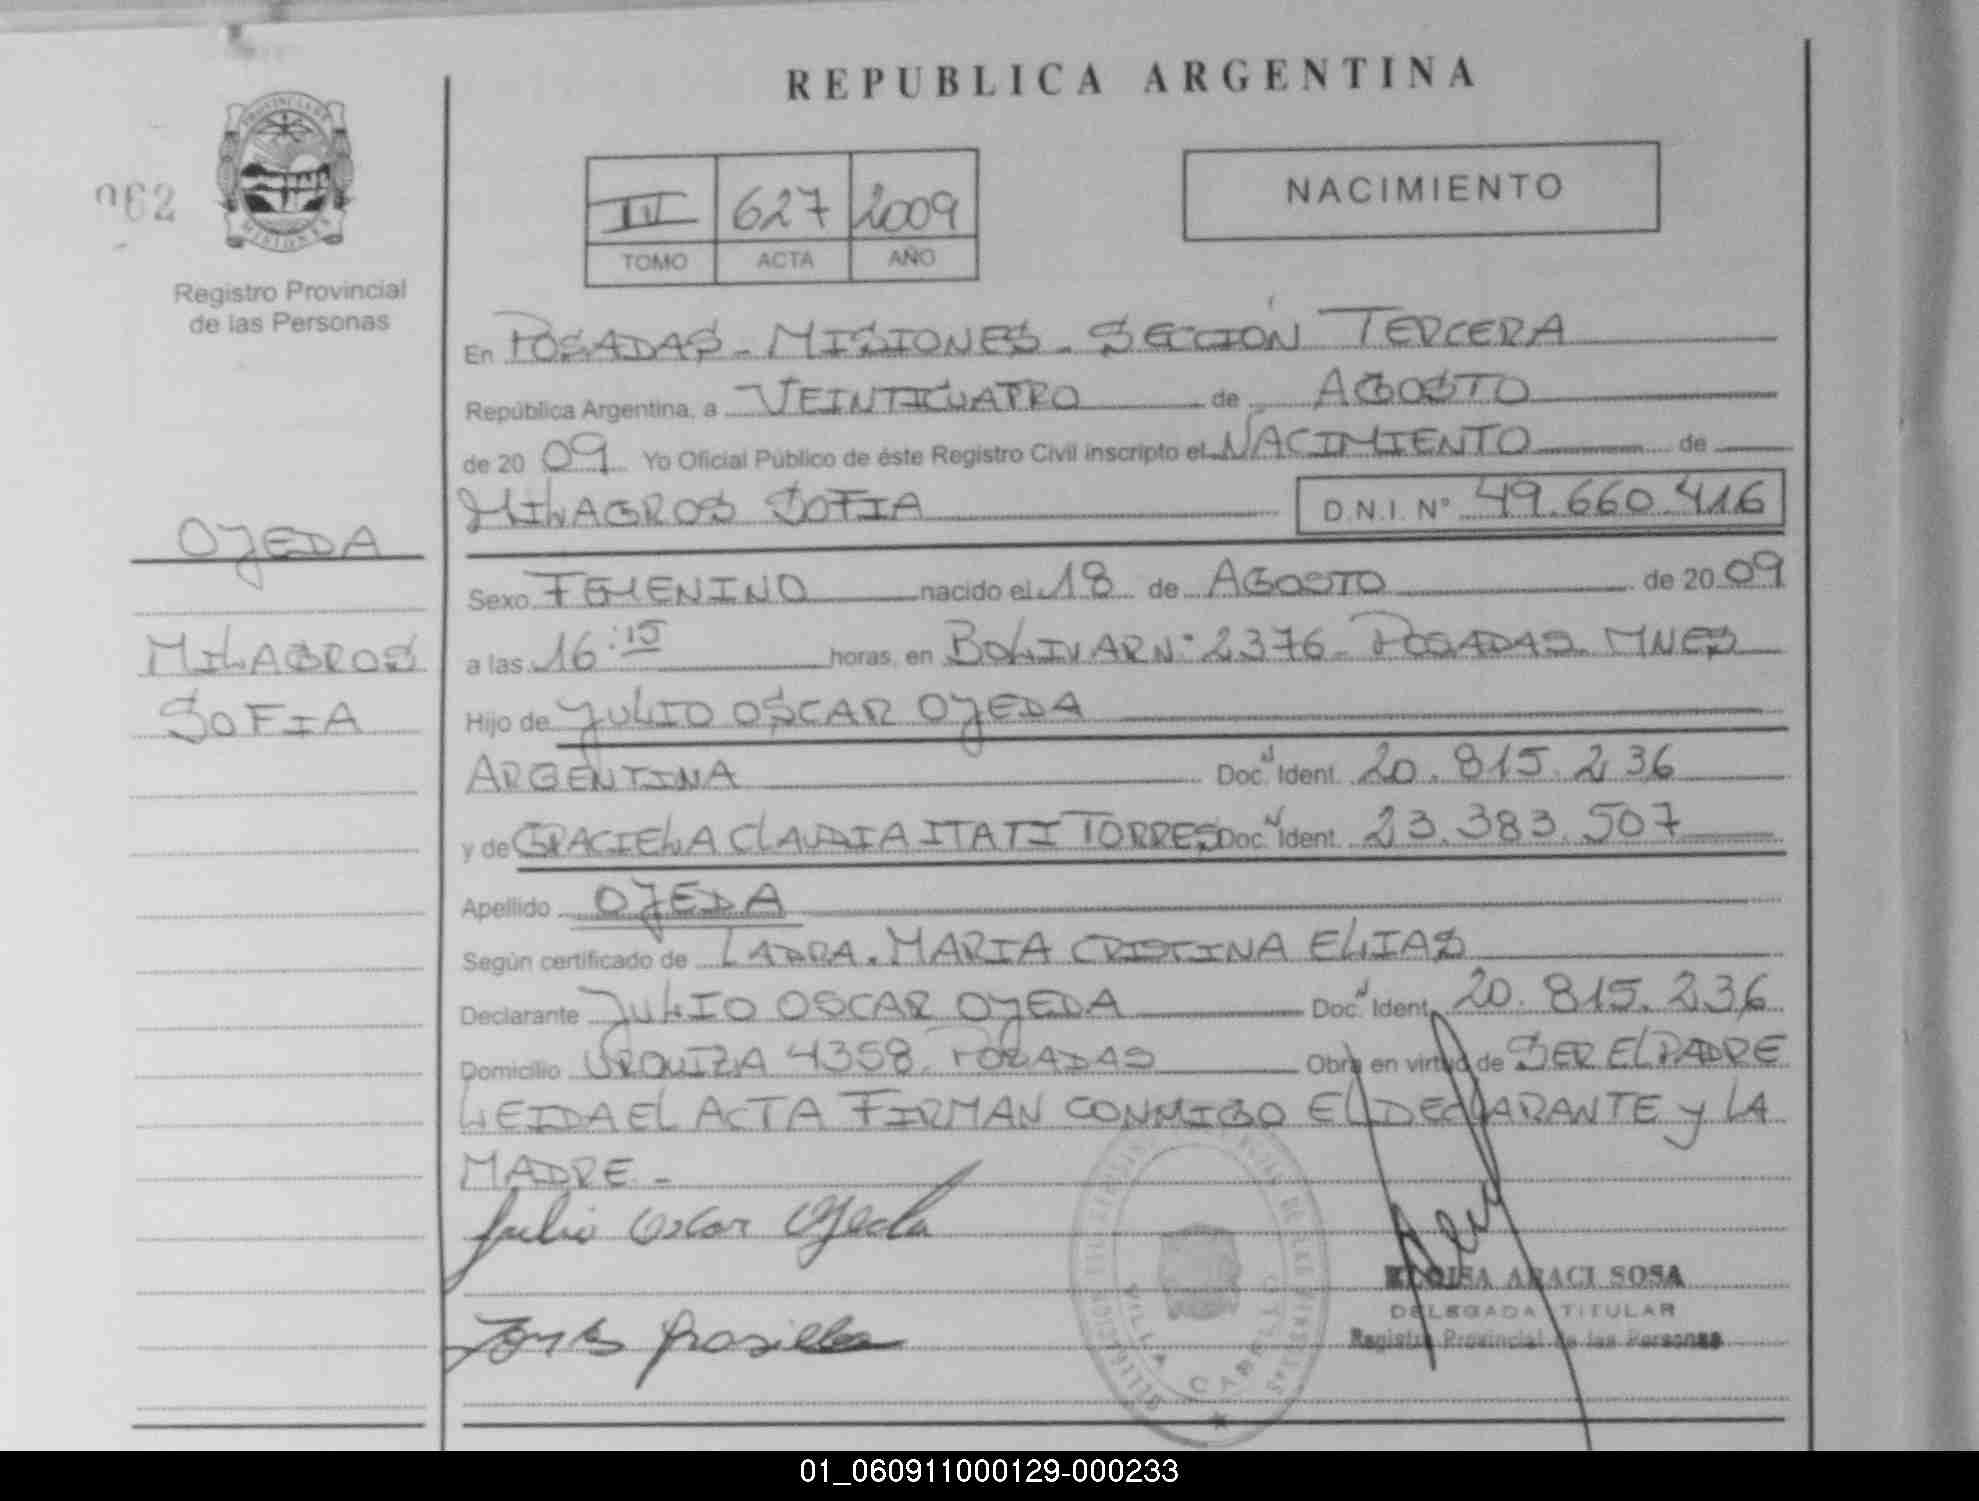 REPUBLICA ARGENTINA
PROVINCIA DE
MISIONES
062
Registro Provincial
de las Personas
627 2009
TOMO ACTA AÑO
NACIMIENTO
En POSADAS - MISIONES - SECCIÓN TERCERA
República Argentina, a VEINTICUATRO de AGOSTO
de 20 09 Yo Oficial Público de éste Registro Civil inscripto el NACIMIENTO de
MILAGROS SOFIA D.N.I. N° 49.660.416
OJEDA
MILAGROS
SOFIA
Sexo FEMENINO nacido el 18 de AGOSTO de 20 09
a las 16:15 horas, en BOLIVAR N° 2376 - POSADAS - MNES
Hijo de JULIO OSCAR OJEDA
ARGENTINA Doc. Ident. 20.815.236
y de GRACIELA CLAUDIA ITATI TORRES Doc. Ident. 23.383.507
Apellido OJEDA
Según certificado de LA DRA. MARIA CRISTINA ELIAS
Declarante JULIO OSCAR OJEDA Doc. Ident. 20.815.236
Domicilio URQUIZA 4358 - POSADAS Obra en virtud de SER EL PADRE
LEIDA EL ACTA FIRMAN CONMIGO EL DECLARANTE Y LA
MADRE -
Julio Oscar Ojeda
VILLA CABELLO
ELOISA ARACI SOSA
DELEGADA TITULAR
Registro Provincial de las Personas
01_060911000129-000233